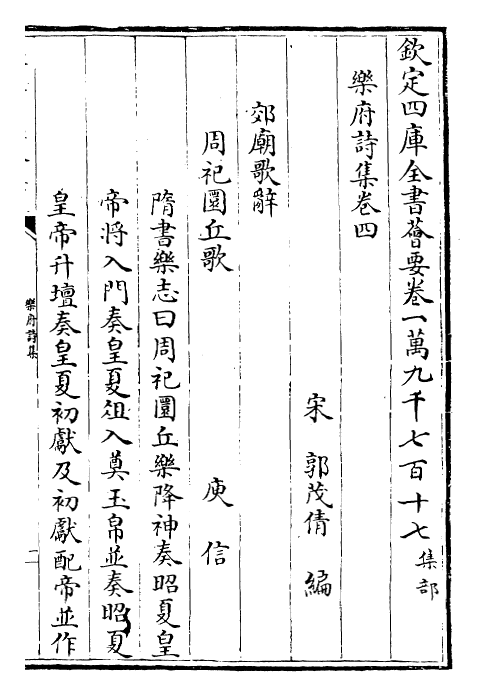 欽定四庫全書薈要卷一萬九千七百十七集部
樂府詩集卷四
宋 郭茂倩 編
郊廟歌辭
周祀圜丘歌 庾信
隋書樂志曰周祀圜丘樂降神奏昭夏皇
帝將入門奏皇夏俎入奠玉帛並奏昭夏
皇帝升壇奏皇夏初獻及初獻配帝並作
樂府詩集